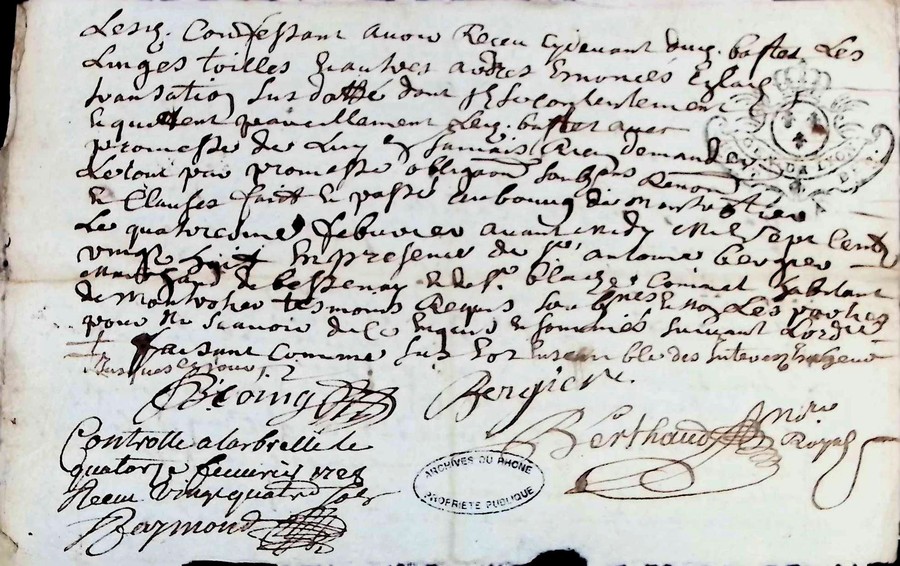 Lesq. Confessant avoir Receu cydevant dusq. bastet Les
Linges toilles & autres andres Enoncés
transation susdatté dont Ils se contentement
& quittent pareillement Lesq. bastet avec
promesse de Luy en jamais Rien demander
Le tout par promesse obligaon soubzons Renon
& Clauses fait & passé au bourg de Montrotier
Le quatorzieme febvrier avant midy Mil Sept Cent
vingt huit En presence de sr. antoine bergier
de bessenay & de sr. Blaize Coinat habitant
de Montrotier tesmoins Requis soubnes & non Les parties
pour ne scavoir de ce Enquis & sommés suivant L'ordce
faisant Comme sus Et Ensemble des Interests
Jusques ce jour
Bergier
Berthaud Nre Royal
Controlle a larbrelle le
quatorze feuvrier 1728
Receu vingt quatre sols
Raymond
ARCHIVES DU RHONE
PROPRIETE PUBLIQUE